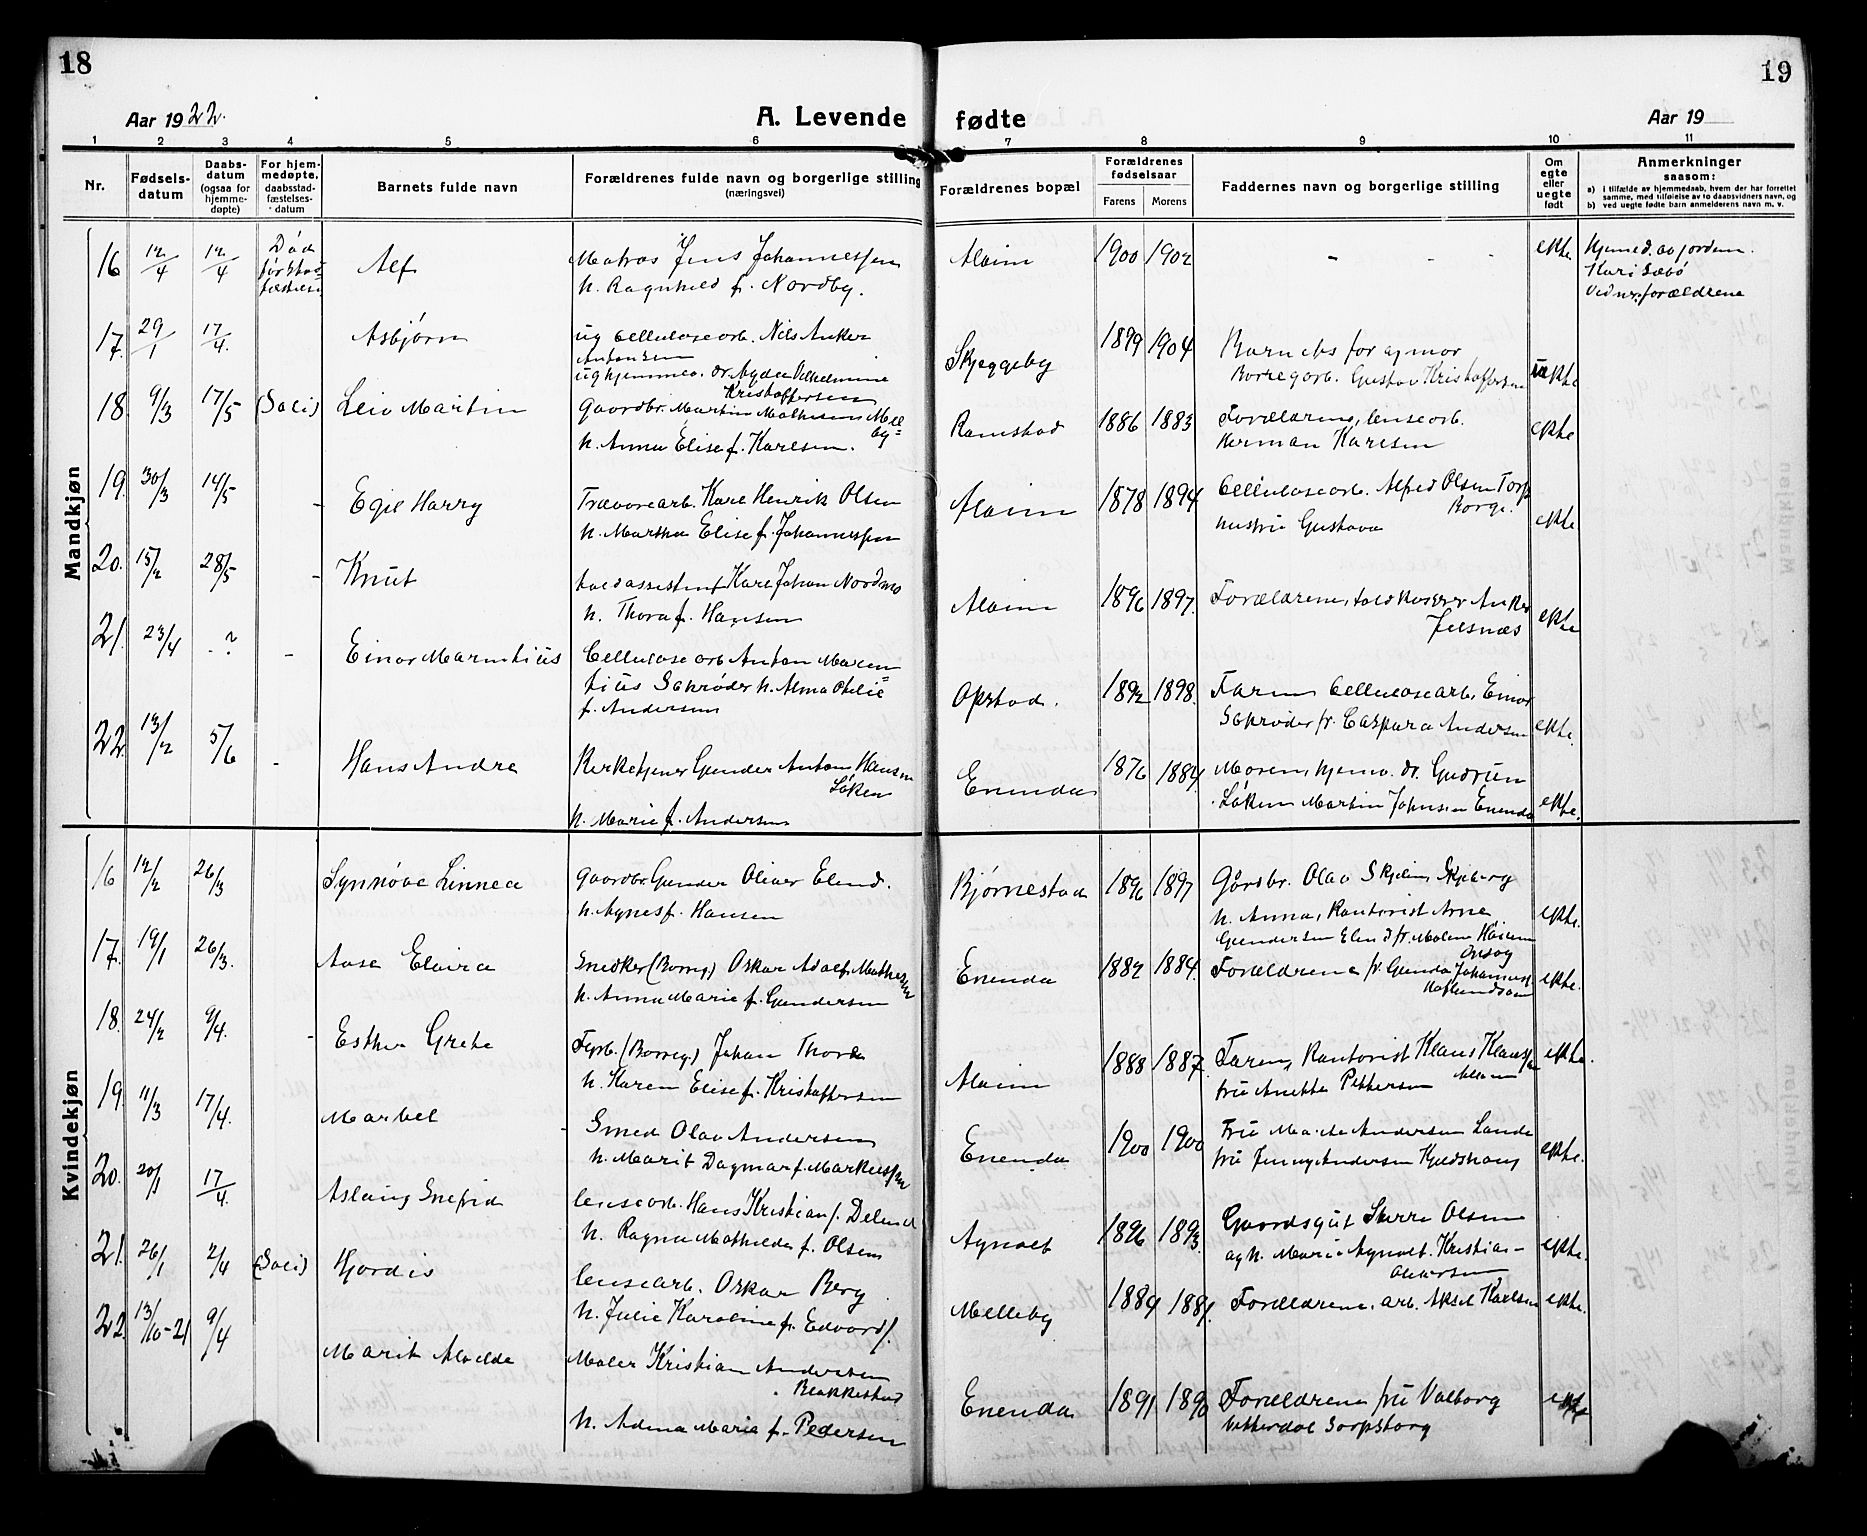 18
19
Aar 1922.
A. Levende fødte
Aar 19
1 2 3 4 5 6 7 8 9 10 11
Nr.
Fødsels-
datum
Daabs-
datum
(ogsaa for
hjemme-
døpte)
For hjem-
medøpte,
daabsstad-
fæstelses-
datum
Barnets fulde navn
Forældrenes fulde navn og borgerlige stilling
(næringsvei)
Forældrenes bopæl
Forældrenes
fødselsaar
Farens Morens
Faddernes navn og borgerlige stilling
Om
egte
eller
uegte
født
Anmerkninger
saasom:
a) i tilfælde av hjemmedaab, hvem der har forrettet
samme, med tilføielse av to daabsvidners navn, og
b) ved uegte fødte barn anmelderens navn m. v.
Mandkjøn
16 12/4 12/4 Død
før stad
fæstelsen
Alf
Matros Jens Johannessen
h. Ragnhild f. Nordby.
1900 1902 - - - ekte
Hjemmed. av jordm.
Kari Sæbö
Vidner, forældrene
17. 29/1 17/4. Asbjørn
ug cellulosearb. Nils Anker
Antonsen
Vilhelmine
Kristoffersen
Skjeggeby 1899 1904
Barnets far og mor
Borregarb. Gustav Kristoffersen
uekte
18. 9/3 17/5 Leiv Martin
Gaardbr. Martin Mathisen Mel
by
h. Anna Elise f. Karlsen.
Ramstad 1886 1883
Forældrene, lensearb.
Herman Karlsen
ekte
19. 30/3 14/5 - Egil Harry
Karl Henrik Olsen
h. Martha Elise f. Johannessen
1878 1894
Cellulosearb. Alfred Olsen Torp
Borge.
hustru Gustava
ekte
20. 15/2 28/5 - Knut
Toldassistent Karl Johan
h. Thora f. Hansen
1896 1897.
Forældrene, toldkasserer Anker
Jelsnæs
ekte
21. 23/4 - ? - Einar
Cellulosearb Anton
Schrøder h.
f. Andersen
Opstad. 1892 1898.
Faren Cellulosearb. Einar
Schrøder fr. Caspara Andersen
ekte.
22. 13/2 5/6 - Hans Andre
Kirketjener Gunder Anton Hansen
Løken
h. Marie f. Andersen
Enenda 1876 1884
Moren, hjemv. dr. Gudrun
Løken Martin Johnsen Enenda
ekte.
Kvindekjøn
16 12/2 26/3 Synnøve Linnea
Gaardbr Gunder Oliver Elend.
h. Agnes f. Hansen
Bjørnestad 1896 1897
Gårdbr. Olav Skjelin, Skjeberg
h. Anna, Kontorist Arne
Gundersen Elend fr. Malene Hansen
Onsøy
ekte.
17. 19/1 26/3. Aase Elvira
Snedker (Borreg.) Oskar Adolf Mathesen
h. Anna Marie f. Gundersen
Enenda 1882 1884.
Forældrene fr. Gunda Johanness.
Haflundsøen
ekte.
18. 24/2 9/4. - Esther Grete
(Borreg.) Johan
h. Karen Elise f. Kristoffersen
1888 1887.
Faren, Kontorist Klaus Klaussen
fru Anette Pettersen
ekte.
19. 11/3 17/4. - Marbel
Smed Olav Andersen
h. Marit Dagmar f. Markussen
Enenda 1900 1900
Fru Andersen Lande
fru Jenny Andersen
ekte.
20. 20/1 17/4 Aslaug Snefrid
lensearb. Hans Kristian f. Delend
h. Ragna Mathilde f. Olsen
Agnalt 1896 1893.
Gaardsgut Olsen
og h. Marie Agnalt. Kristian
ekte.
21. 26/1 2/4 Hjørdis
lensearb. Oskar Berg
h. Julie Karoline f. Edvards.
Melleby 1889 1881.
Forældrene, arb. Aksel Karlsen
ekte.
22. 13/10-21 9/4 Marit Alvilde
Maler Kristian Andersen
Brakkestad
h. Adena Marie f. Pedersen
Enenda 1891 1890
Forældrene fru Valborg
Vetterdal Sarpsborg
ekte